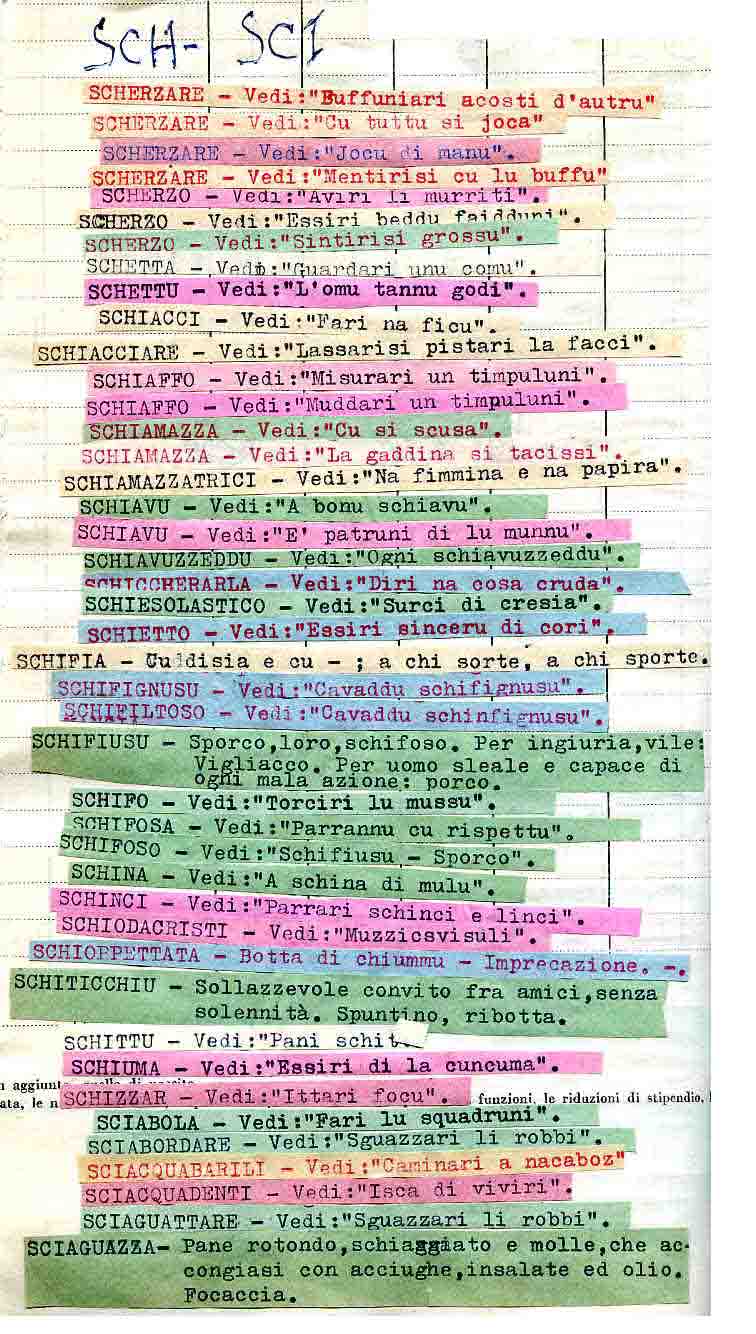 SCH- SCI
SCHERZARE - Vedi:"Buffuniari acosti d'autru"
SCHERZARE - Vedi:"Cu tuttu si joca"
SCHERZARE - Vedi:"Jocu di manu".
SCHERZARE - Vedi:"Mentirisi cu lu buffu"
SCHERZO - Vedi:"Aviri li murriti".
SCHERZO - Vedi:"Essiri beddu faidduni".
SCHERZO - Vedi:"Sintirisi grossu".
SCHETTA - Vedi:"Guardari unu comu".
SCHETTU - Vedi:"L'omu tannu godi".
SCHIACCI - Vedi:"Fari na ficu".
SCHIACCIARE - Vedi:"Lassarisi pistari la facci".
SCHIAFFO - Vedi:"Misurari un timpuluni".
SCHIAFFO - Vedi:"Muddari un timpuluni".
SCHIAMAZZA - Vedi:"Cu si scusa".
SCHIAMAZZA - Vedi:"La gaddina si tacissi".
SCHIAMAZZATRICI - Vedi:"Na fimmina e na papira".
SCHIAVU - Vedi:"A bonu schiavu".
SCHIAVU - Vedi:"E' patruni di lu munnu".
SCHIAVUZZEDDU - Vedi:"Ogni schiavuzzeddu".
SCHICCHERARLA - Vedi:"Diri na cosa cruda".
SCHIESOLASTICO - Vedi:"Surci di cresia".
SCHIETTO - Vedi:"Essiri sinceru di cori".
SCHIFIA - Culdisia e cu - ; a chi sorte, a chi sporte.
SCHIFIGNUSU - Vedi:"Cavaddu schifignusu".
SCHIFILTOSO - Vedi:"Cavaddu schinfignusu".
SCHIFIUSU - Sporco,loro,schifoso. Per ingiuria,vile:
Vigliacco. Per uomo sleale e capace di
ogni mala azione: porco.
SCHIFO - Vedi:"Torciri lu mussu".
SCHIFOSA - Vedi:"Parrannu cu rispettu".
SCHIFOSO - Vedi:"Schifiusu - Sporco".
SCHINA - Vedi:"A schina di mulu".
SCHINCI - Vedi:"Parrari schinci e linci".
SCHIODACRISTI - Vedi:"Muzzicavisuli".
SCHIOPPETTATA - Botta di chiummu - Imprecazione. -.
SCHITICCHIU - Sollazzevole convito fra amici,senza
solennità. Spuntino, ribotta.
SCHITTU - Vedi:"Pani schit
SCHIUMA - Vedi:"Essiri di la cuncuma".
n aggiunt
SCHIZZAR - Vedi:"Ittari focu".
ata, le n funzioni, le riduzioni di stipendio,
SCIABOLA - Vedi:"Fari lu squadruni".
SCIABORDARE - Vedi:"Sguazzari li robbi".
SCIACQUABARILI - Vedi:"Caminari a nacaboz"
SCIACQUADENTI - Vedi:"Isca di viviri".
SCIAGUATTARE - Vedi:"Sguazzari li robbi".
SCIAGUAZZA- Pane rotondo,schiaggiato e molle,che ac-
congiasi con acciughe,insalate ed olio.
Focaccia.